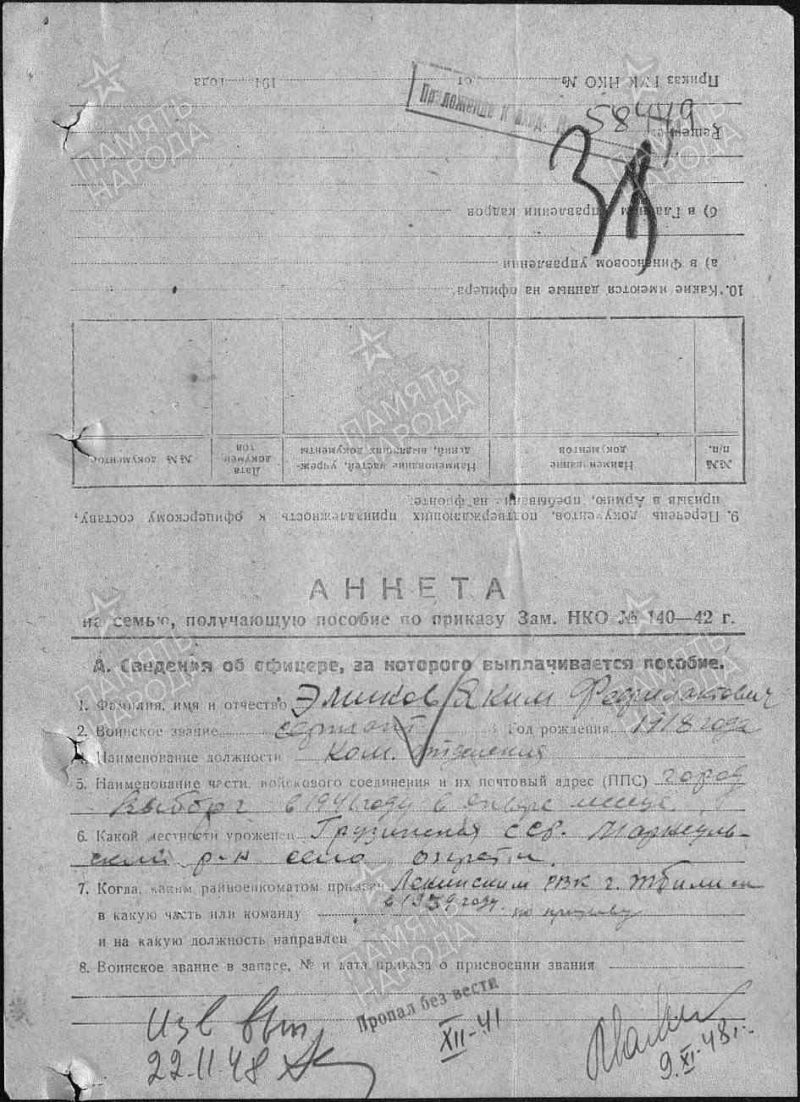 Приказ ГУК НКО № от 194 года
Приложение к вход. №
58449
Решение
б) в Главном управлении кадров
а) в Финансовом управлении
10. Какие имеются данные на офицера:
№№ п/п. Наименование документов Наименование частей, учреж- дений, выдавших документы Дата докумен- тов №№ документов
9. Перечень документов, подтверждающих принадлежность к офицерскому составу,
призыв в Армию, пребывание на фронте:
АНКЕТА
на семью, получающую пособие по приказу Зам. НКО № 140—42 г.
А. Сведения об офицере, за которого выплачивается пособие.
1. Фамилия, имя и отчество Эликов Яким Феофилактович
2. Воинское звание сержант Год рождения 1918 года
Наименование должности ком. отделения
5. Наименование части, войскового соединения и их почтовый адрес (ППС) город
Выборг в 1941 году в
6. Какой местности уроженец Грузинская ССР. Марнеуль-
ский р-н село
7. Когда, каким райвоенкоматом призван Ленинским РВК г. Тбилиси
в 1939 году. по призыву
в какую часть или команду
и на какую должность направлен
8. Воинское звание в запасе, № и дата приказа о присвоении звания
Пропал без вести
XII-41
Изв выс
22.11.48
9.XI.48г.
ПАМЯТЬ НАРОДА
ПАМЯТЬ НАРОДА
ПАМЯТЬ НАРОДА
ПАМЯТЬ НАРОДА
ПАМЯТЬ НАРОДА
ПАМЯТЬ НАРОДА